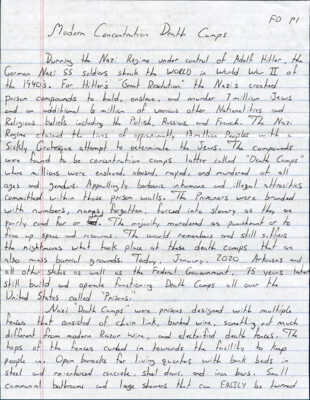 FD P1
Modern Concentration Death Camps
Durning the Nazi Regime under control of Adolf Hitler, the
German Nazi SS soldiers shook the WORLD in World War II of
the 1940's. For Hitler's "Great Resolution" the Nazi's created
prison compounds to hold, enslave, and murder 7 million Jews
and an additional 6 million of various other Nationalities and
Religious beliefs including the Polish, Russians, and French. The Nazi
Regime claimed the lives of approximatly, 13 million Peoples with a
Sickly Grotesque attempt to exterminate the Jews. The compounds
were found to be concentration camps latter called "Death Camps"
where millions were enslaved, abused, raped, and murdered of all
ages and genders. Appallingly barbaric inhumane and illegal attrocities
committed within those prison walls. The Prisoners were branded
with numbers, names forgotten, forced into slavery as they are
fed for or The majority murdered as punishment or to
free up space and resources. The world remembers and still suffers
the nightmares what took place at these death camps that are
also mass burrial grounds. Today, January, 2020 Arkansas and
all other states as well as the Federal Government, 75 years later
still build and operate functioning Death Camps all over the
United States called "Prisons.
Nazi "Death Camps" were prisons designed with multiple
fences that consisted of chain link, barbed wire, something not much
different from modern Razor wire, and electrified death fences. The
tops of the fences curved in towards the facility to Keep
people in. Open barracks for living quarters with bunk beds in
steel and re-enforced concrete, steel doors, and iron bars. Small
communal bathrooms and large showers that can EASILY be turned